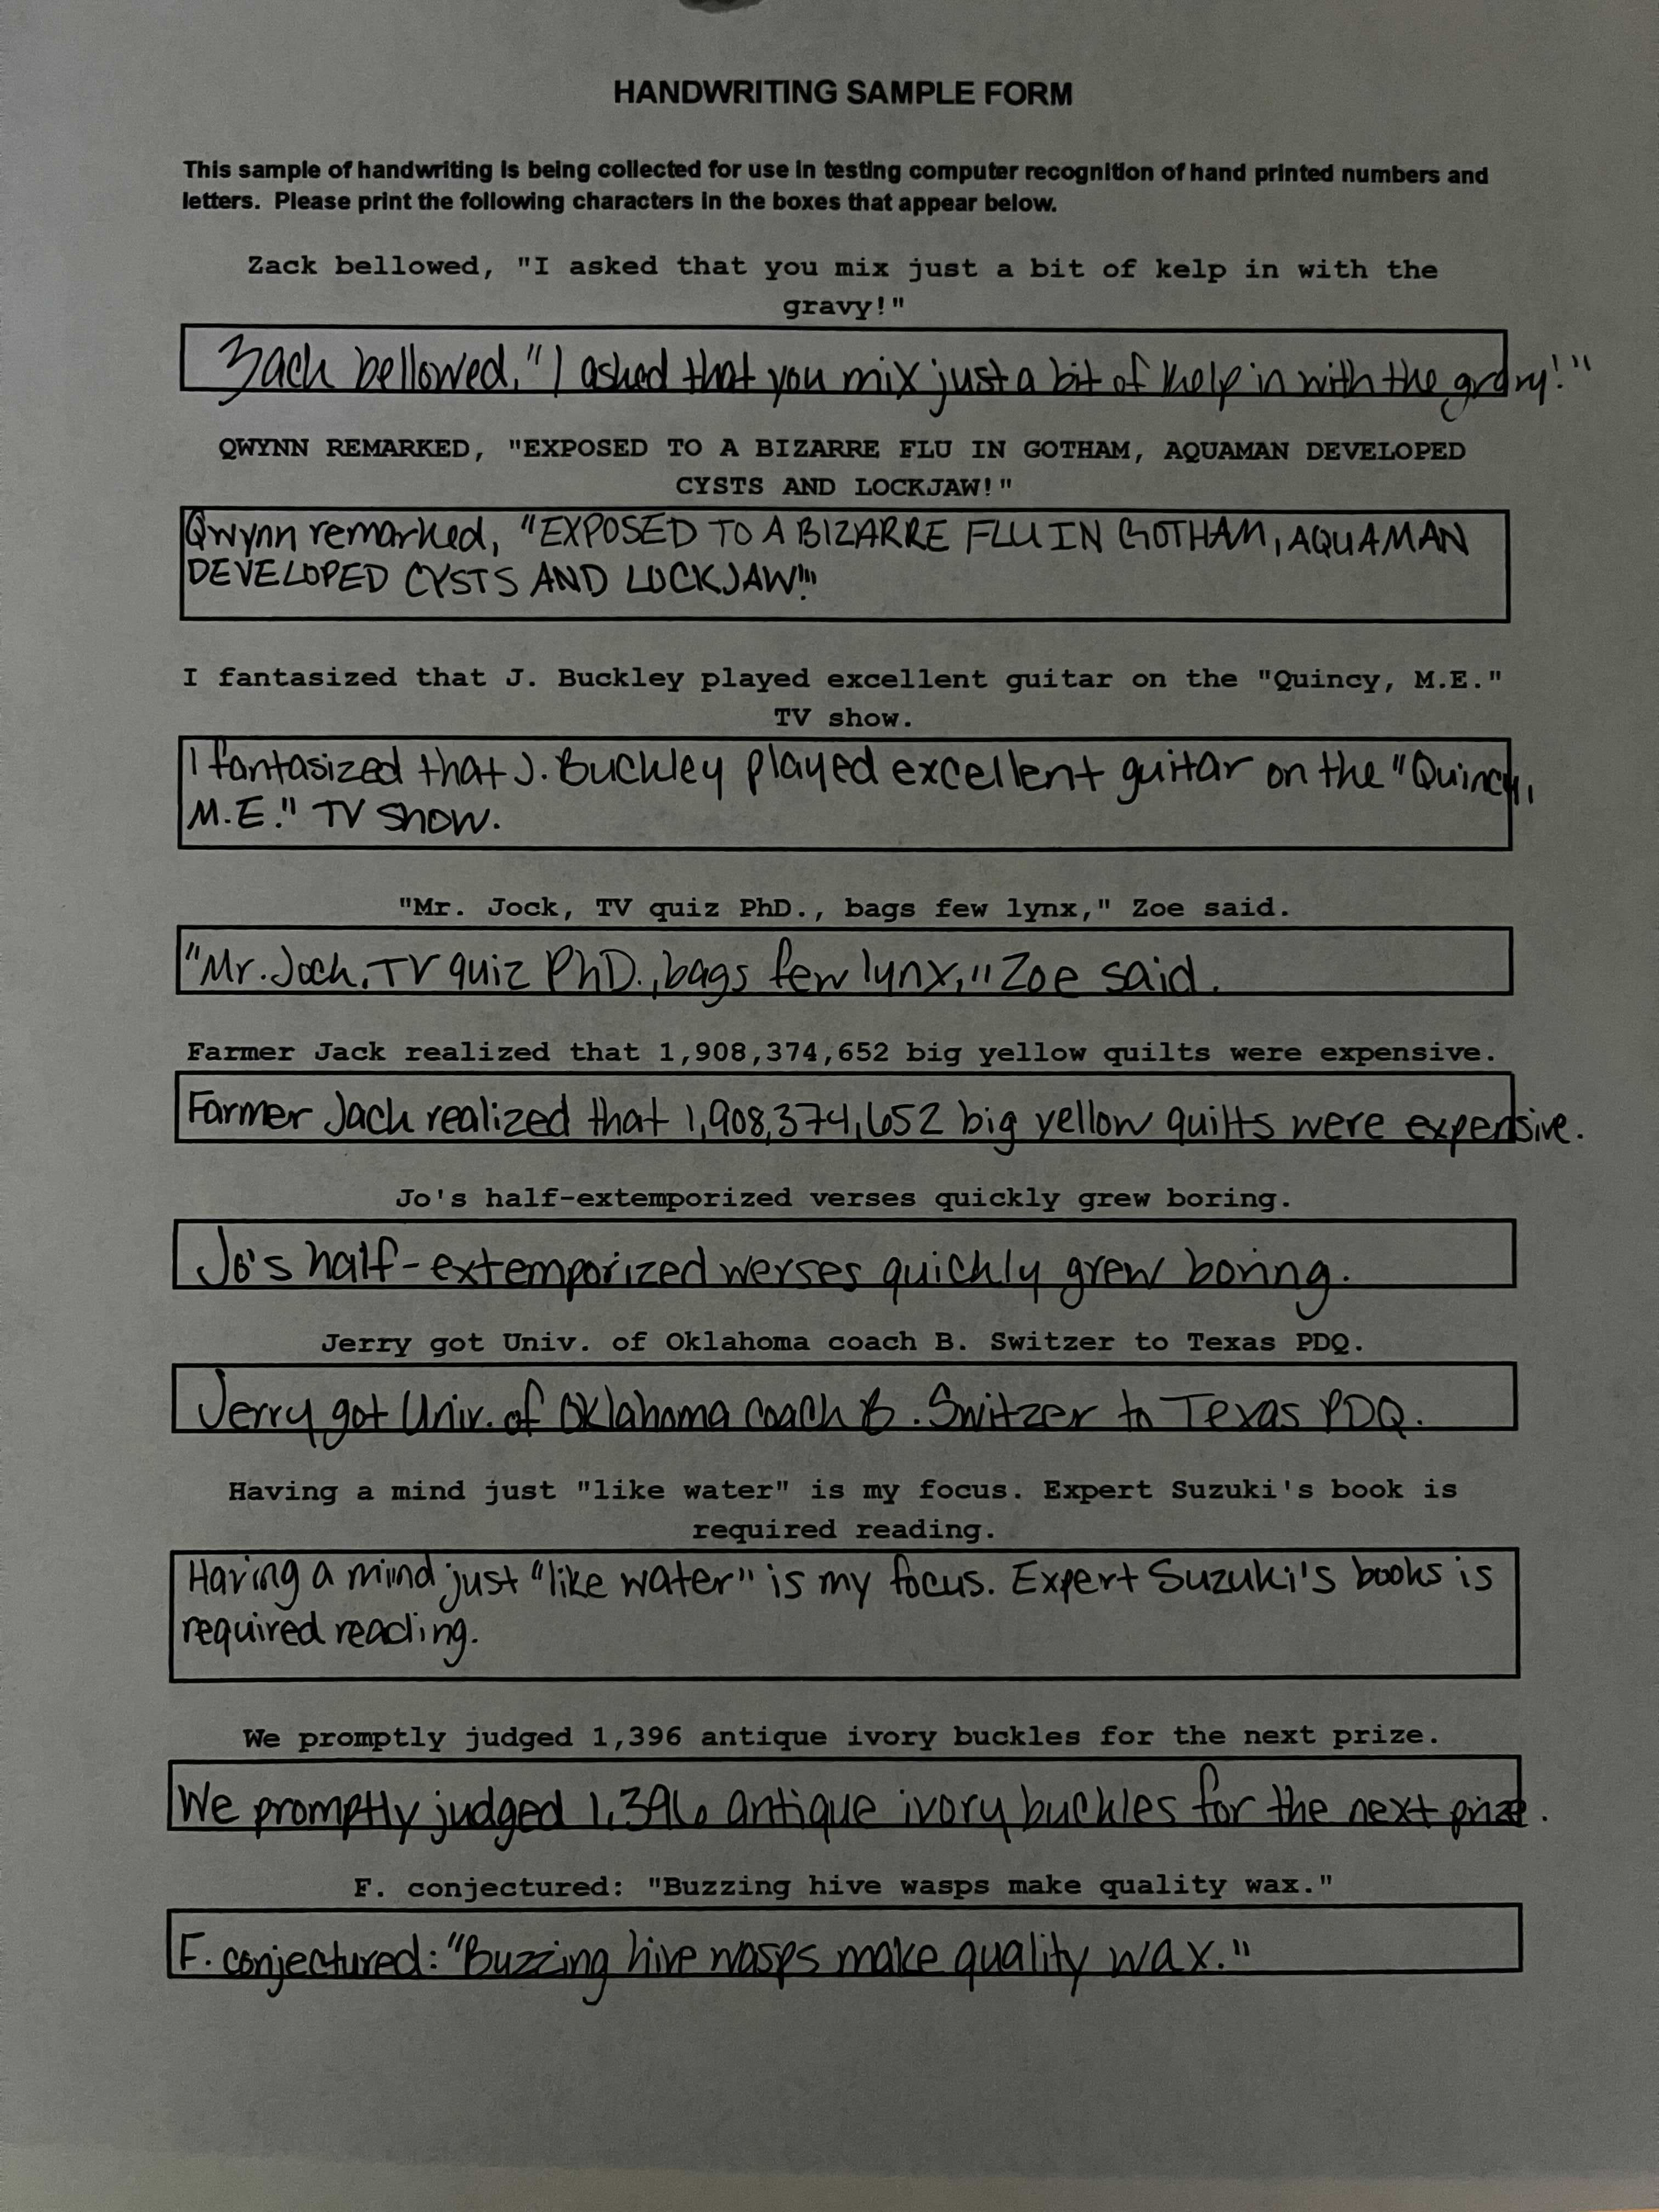 HANDWRITING SAMPLE FORM
This sample of handwriting is being collected for use in testing computer recognition of hand printed numbers and
letters. Please print the following characters in the boxes that appear below.
Zack bellowed, "I asked that you mix just a bit of kelp in with the
gravy!"
Zack bellowed, "I asked that you mix just a bit of kelp in with the gravy!"
QWYNN REMARKED, "EXPOSED TO A BIZARRE FLU IN GOTHAM, AQUAMAN DEVELOPED
CYSTS AND LOCKJAW!"
Qwynn remarked, "EXPOSED TO A BIZARRE FLU IN GOTHAM, AQUAMAN
DEVELOPED CYSTS AND LOCKJAW!"
I fantasized that J. Buckley played excellent guitar on the "Quincy, M.E."
TV show.
I fantasized that J. Buckley played excellent guitar on the "Quincy,
M.E." TV show.
"Mr. Jock, TV quiz PhD., bags few lynx," Zoe said.
"Mr. Jock, TV quiz PhD., bags few lynx," Zoe said.
Farmer Jack realized that 1,908,374,652 big yellow quilts were expensive.
Farmer Jack realized that 1,908,374,652 big yellow quilts were expensive.
Jo's half-extemporized verses quickly grew boring.
Jo's half-extemporized werses quickly grew boring.
Jerry got Univ. of Oklahoma coach B. Switzer to Texas PDQ.
Jerry got Univ. of Oklahoma coach B. Switzer to Texas PDQ.
Having a mind just "like water" is my focus. Expert Suzuki's book is
required reading.
Having a mind just "like water" is my focus. Expert Suzuki's books is
required reading.
We promptly judged 1,396 antique ivory buckles for the next prize.
We promptly judged 1,396 antique ivory buckles for the next prize.
F. conjectured: "Buzzing hive wasps make quality wax."
F. conjectured: "Buzzing hive wasps make quality wax."